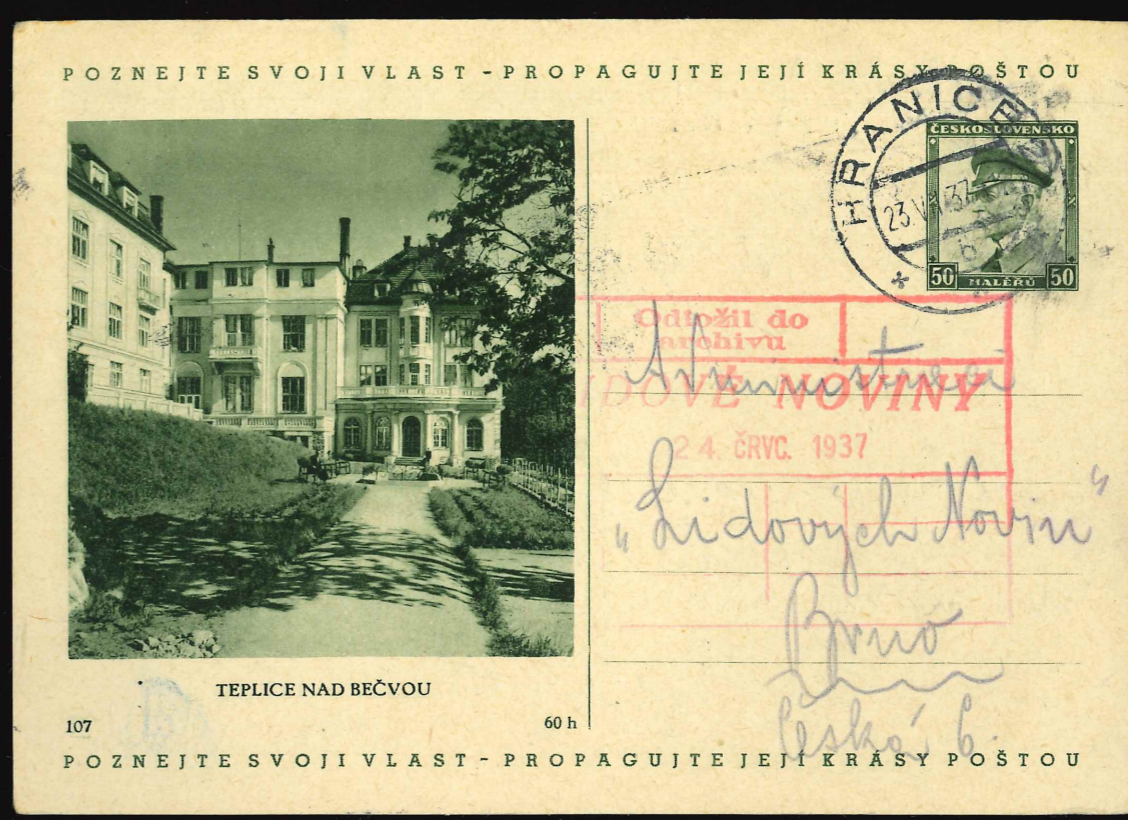 POZNEJTE SVOJI VLAST - PROPAGUJTE JEJÍ KRÁSY POŠTOU
HRANICE
ČESKOSLOVENSKO
50 HALÉŘŮ 50
Odložil do
archivu
LIDOVÉ NOVINY
24. ČRVC. 1937
Administraci
„Lidových Novin"
Brno
Česká 6.
TEPLICE NAD BEČVOU
107
60 h
POZNEJTE SVOJI VLAST - PROPAGUJTE JEJÍ KRÁSY POŠTOU